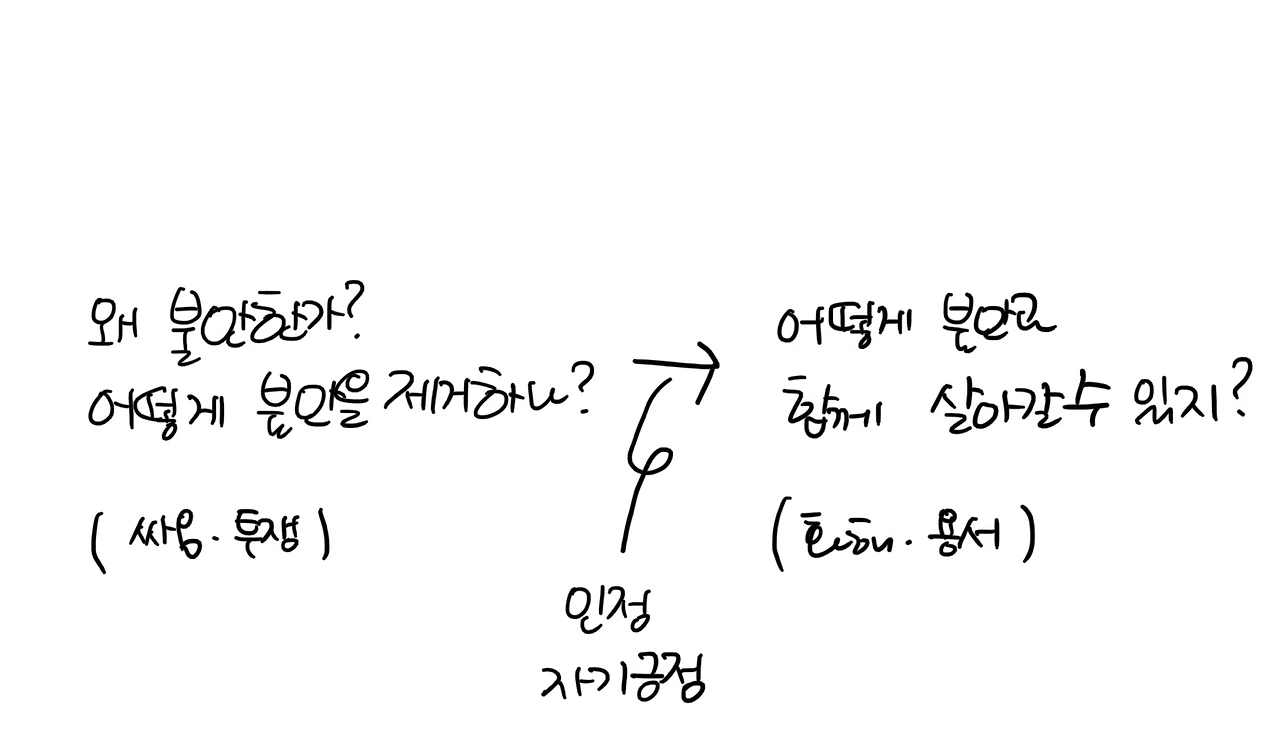 왜 불안한가?
어떻게 불안을 제거하나?
(싸움·투쟁)
→
인정
자기긍정
어떻게 불안과
함께 살아갈수 있지?
(화해·용서)